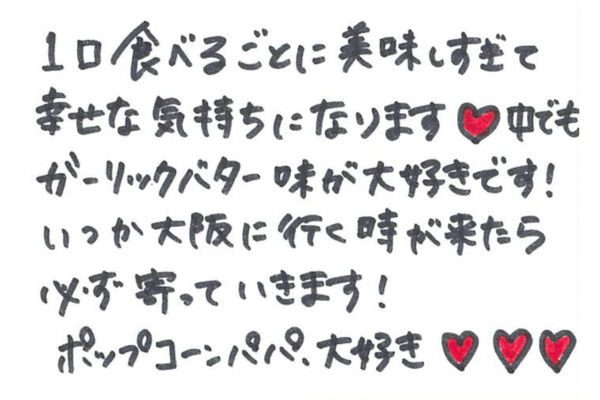 1口食べるごとに美味しすぎて
幸せな気持ちになります♥中でも
ガーリックバター味が大好きです!
いつか大阪に行く時が来たら
必ず寄っていきます!
ポップコーンパパ、大好き♥♥♥